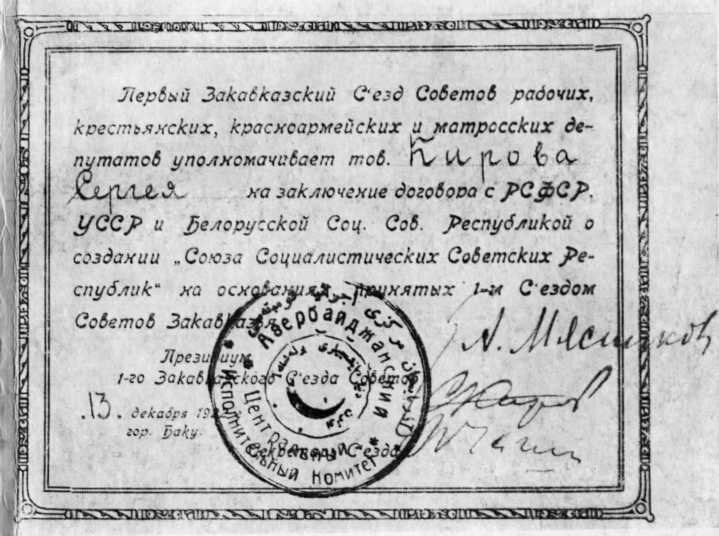 Первый Закавказский С‘езд Советов рабочих,
крестьянских, красноармейских и матросских де-
путатов уполномачивает тов. Кирова
Сергея на заключение договора с РСФСР,
УССР и Белорусской Соц. Сов. Республикой о
создании „Союза Социалистических Советских Ре-
спублик“ на основаниях, принятых 1-м С‘ездом
Советов Закавказья.
Президиум
1-го Закавказского С‘езда Советов
А. Мясников
13. декабря
гор. Баку.
Секретарь С‘езда
Азербайджанский
Центральный
Исполнительный Комитет